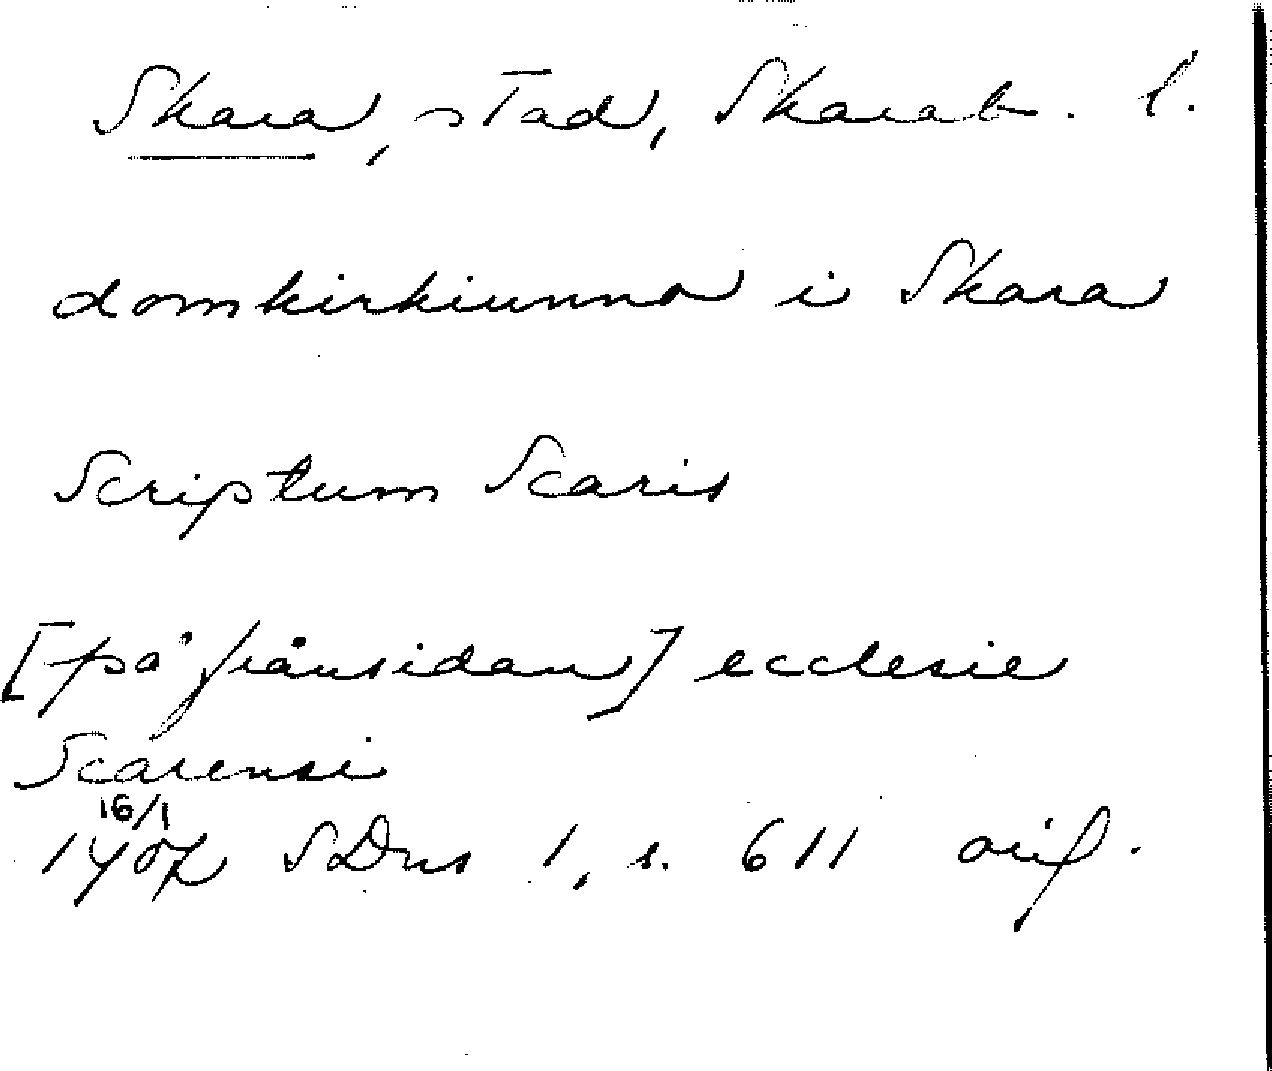 Skara, stad, Skarab. l.
domkirkiunna i Skara
Scriptum Scaris
[på frånsidan] ecclesie
Scarensi
16/1
1407 SDns 1, s. 611 orig.